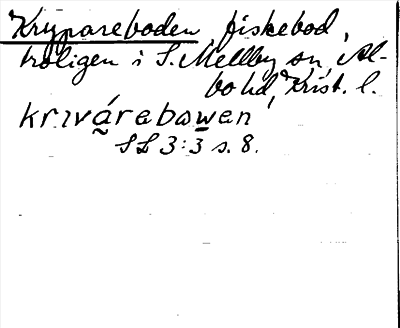 Krypareboden, fiskebod,
troligen i S. Mellby sn, Al-
bo hd, Krist. l.
krıvárebawen
SL 3:3 s. 8.